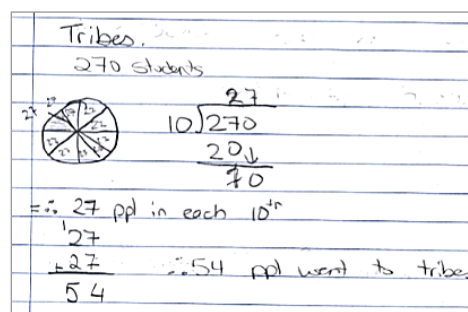 Tribes.
270 students
27
10)270
20↓
70
27 27 27 27 27 27 27 27
=∴ 27 ppl in each 10th
1
27
+27
54
∴ 54 ppl went to tribes